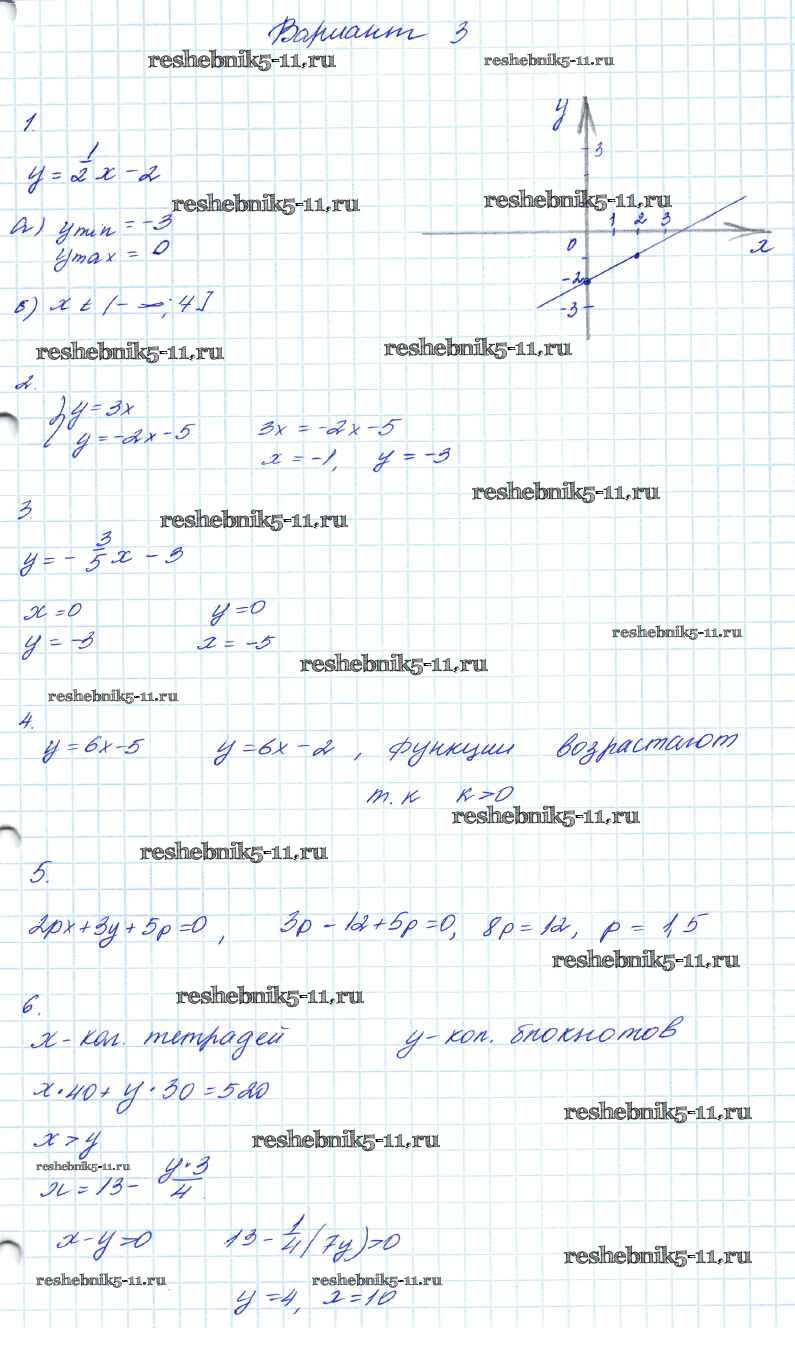 Вариант 3
reshebnik5-11.ru reshebnik5-11.ru
1.
y = 1/2 x - 2
reshebnik5-11.ru
a) y min = -3
y max = 0
б) x ∈ (-∞; 4]
reshebnik5-11.ru
y
3
reshebnik5-11.ru
1 2 3
0 x
-2
-3
reshebnik5-11.ru
2.
{ y = 3x
y = -2x - 5
3x = -2x - 5
x = -1, y = -3
reshebnik5-11.ru
3.
reshebnik5-11.ru
y = - 3/5 x - 3
x = 0 y = 0
y = -3 x = -5
reshebnik5-11.ru
reshebnik5-11.ru
reshebnik5-11.ru
4.
y = 6x - 5 y = 6x - 2 , функции возрастают
т.к k > 0
reshebnik5-11.ru
reshebnik5-11.ru
5.
2px + 3y + 5p = 0 , 3p - 12 + 5p = 0, 8p = 12, p = 1,5
reshebnik5-11.ru
6.
reshebnik5-11.ru
x - кол. тетрадей y - кол. блокнотов
x · 40 + y · 30 = 520
reshebnik5-11.ru
x > y
reshebnik5-11.ru
reshebnik5-11.ru
x = 13 - y·3/4
x - y > 0 13 - 1/4 (7y) > 0
reshebnik5-11.ru
reshebnik5-11.ru reshebnik5-11.ru
y = 4, x = 10